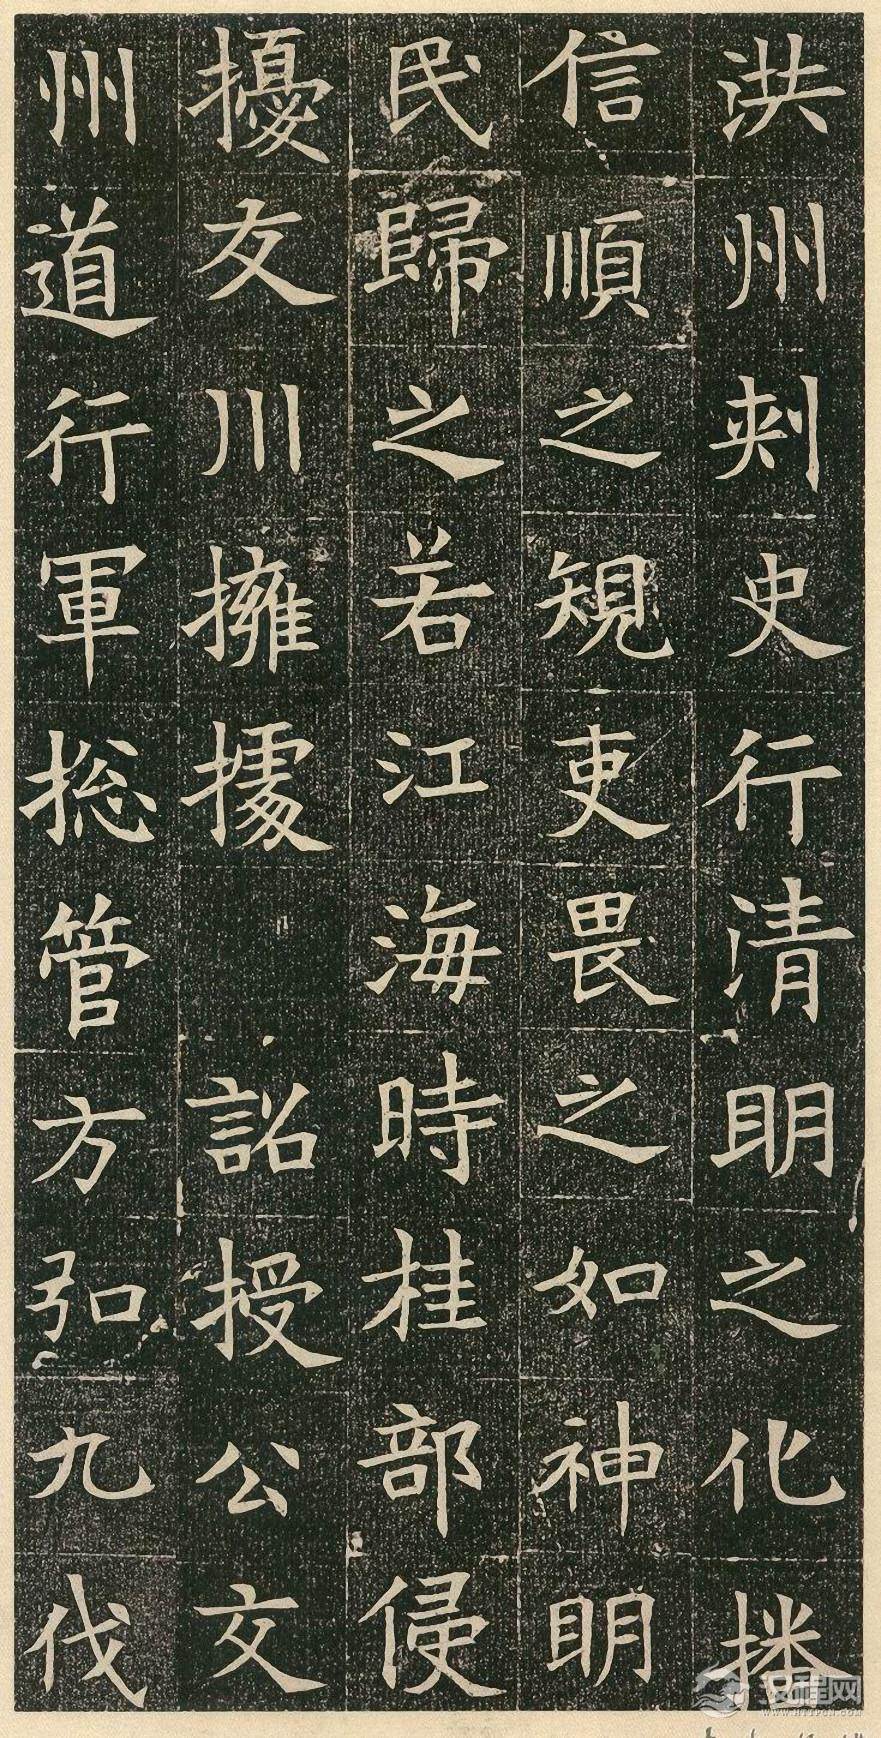 洪州刾史行清明之化播
信順之規吏畏之如神明
民歸之若江海時桂部侵
擾友川擁據詔授公交
州道行軍揔管方弘九伐
汉程网
WWW.HTTPCN.COM